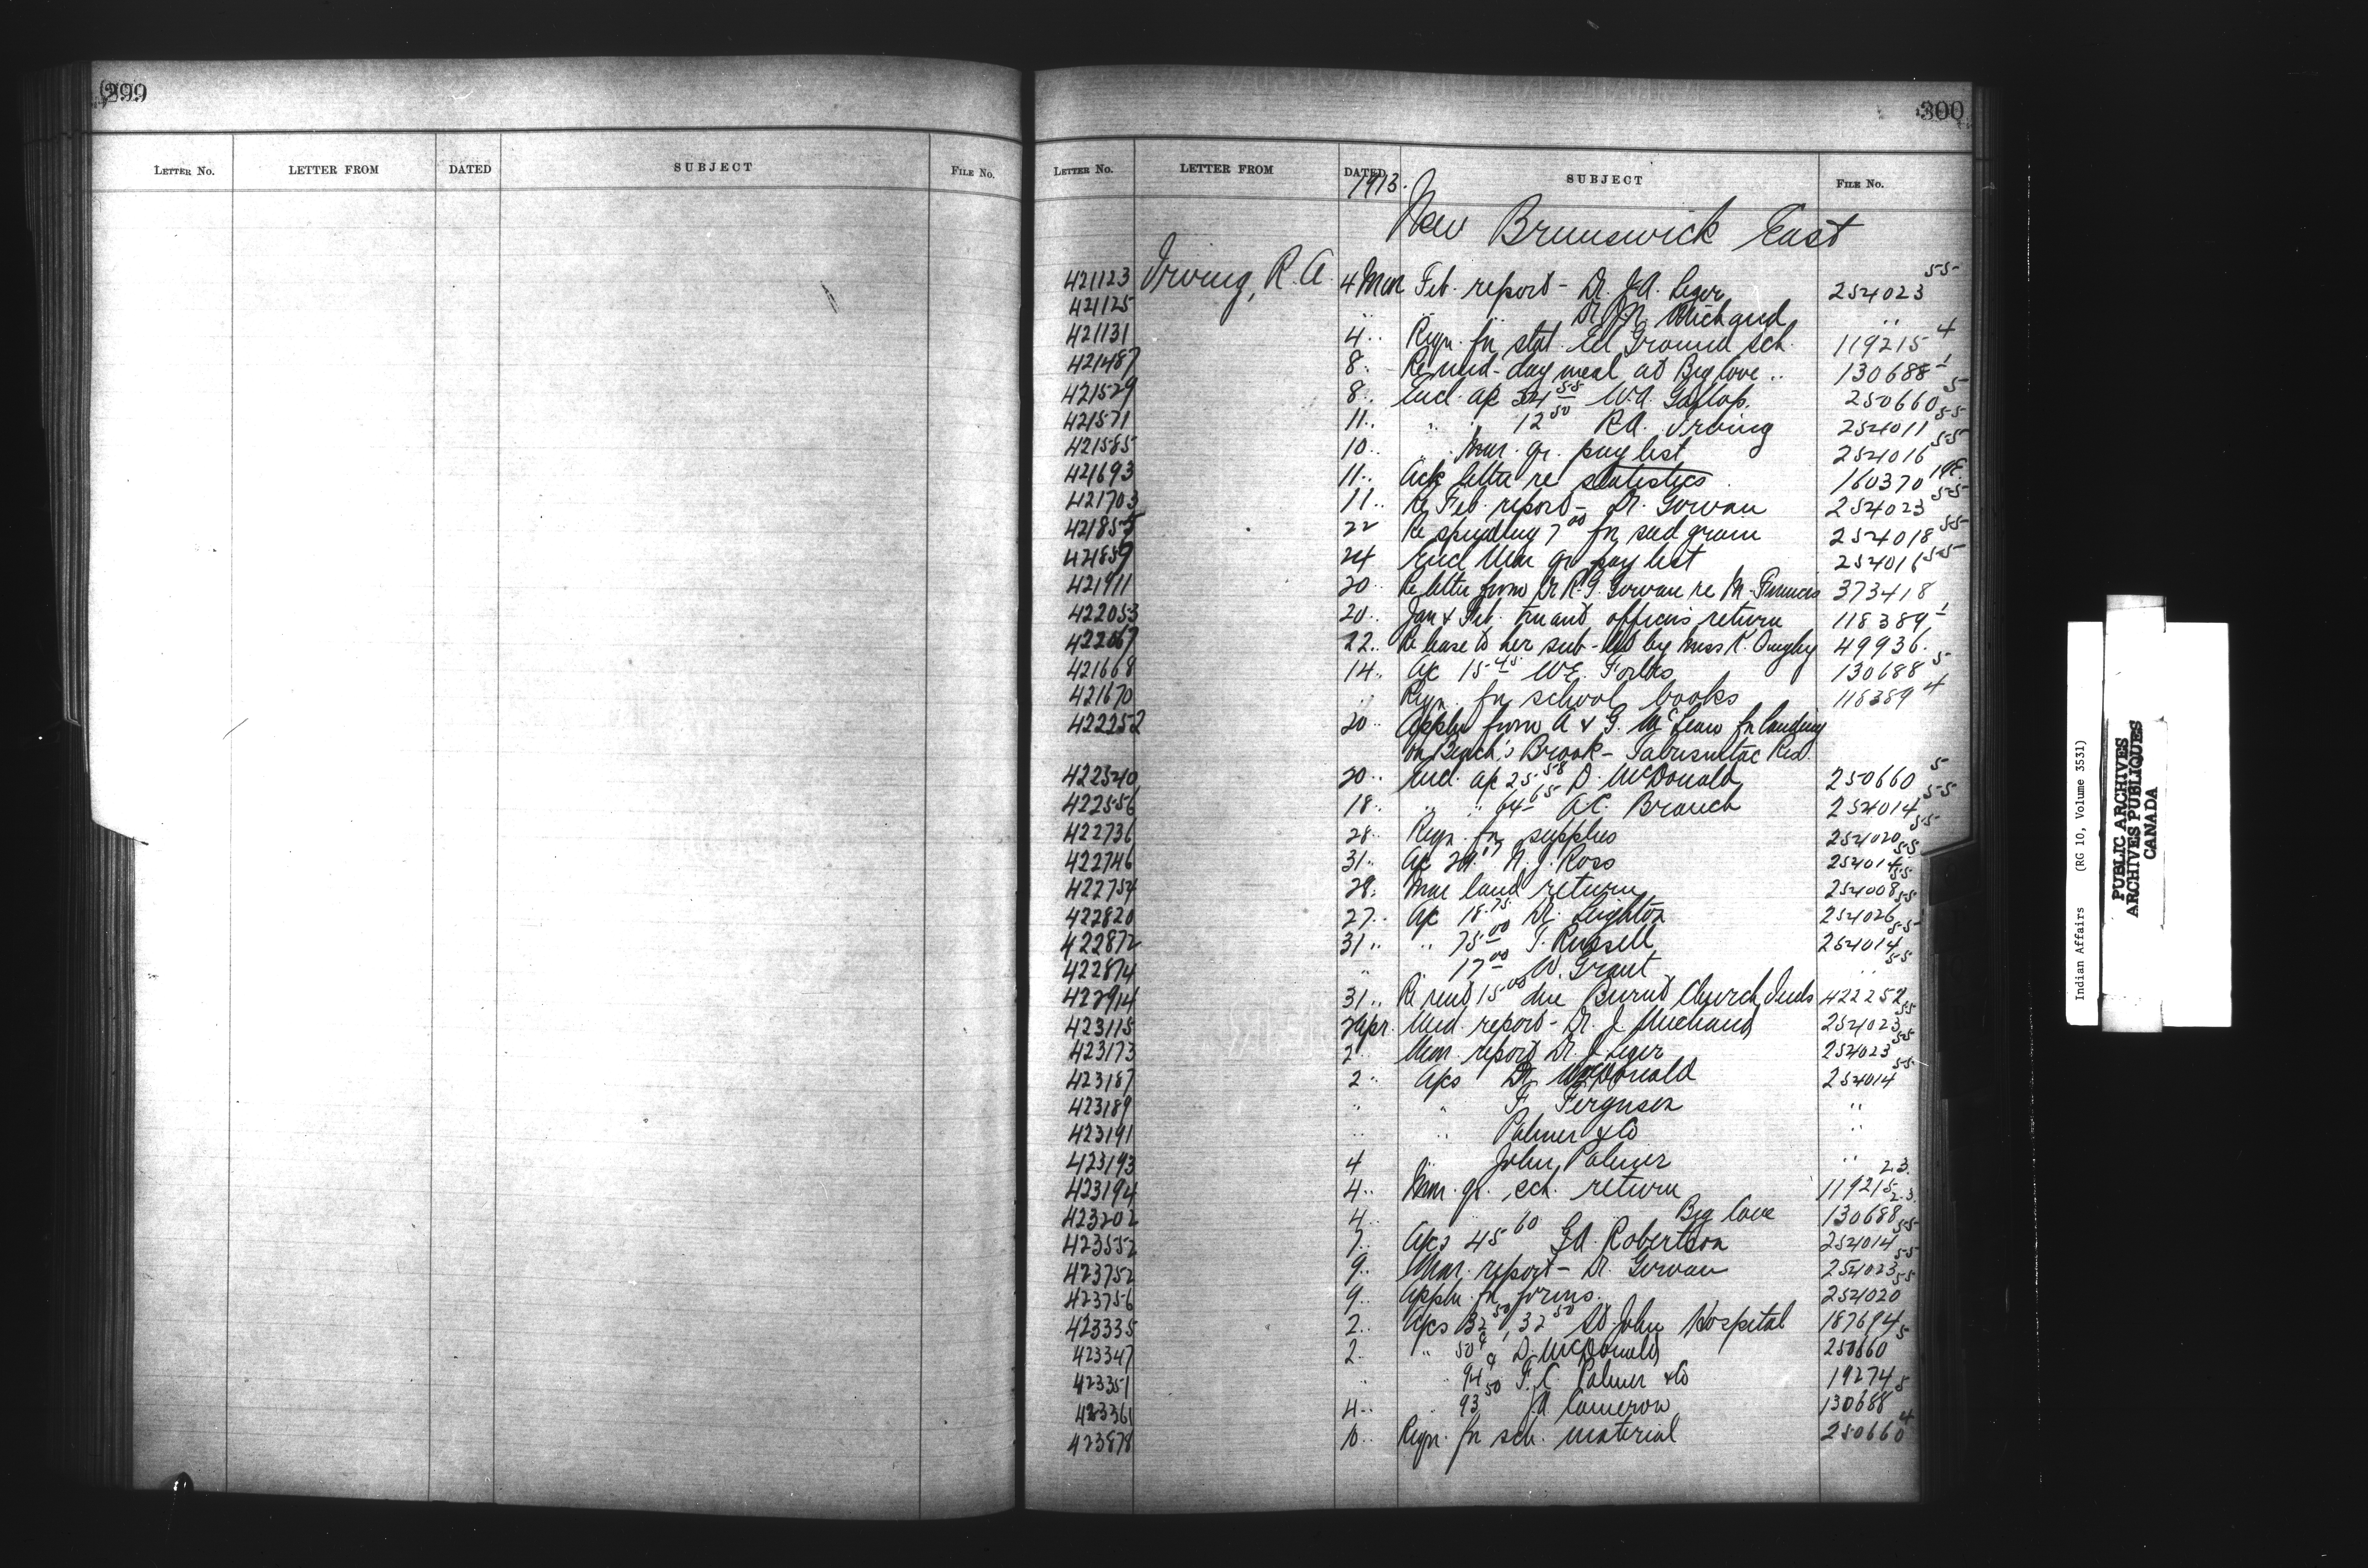 299
LETTER No. LETTER FROM DATED SUBJECT FILE No.
300
LETTER No. LETTER FROM DATED SUBJECT FILE No.
1913.
New Brunswick East
421123 Irving, R. A. 4 Mar Feb. report - Dr. J.A. Leger 254023 55
421125 " " " Dr. "
421131 4 " Reqn. fn stat. Eel Ground sch. 119215 4
421487 8 " Re mid-day meal at Big Cove " 130688 1
421529 8 " Encl. a/c 55 W.A. 250660 5
421571 11 " " " 12 50 R.A. Irving 254011 55
421585 10 " " Mar. qr. pay list 254016 55
421693 11 " Ack letter re statistics 160370
421703 11 " Re Feb. report - Dr. Gorvan 254023 55
421855 22 Re spending 7 00 fn seed grain 254018 55
421859 24 Encl Mar qr pay list 254016 55
421911 20 " Re letter from Dr R.G. Gorvan re M. Francis 373418
422053 20 " Jan & Feb. truant officers return 118389 1
422067 22 " Re lease to her sub-let by Miss K. 49936.
421668 14 " a/c 15 45 W.E. Forbes 130688 5
421670 " Reqn. fn school books 118389 4
422252 20 " Appln from A & G. McLean fn landing
on Beach's Brook - Tabusintac Res.
422340 20 " Encl. a/c 25 58 D. McDonald 250660 5
422556 18 " " " 64 65 A.C. Branch 254014 55
422736 28 " Reqn. fn supplies 254020 55
422746 31 " a/c N. J. Ross 254014 55
422754 28 " Mar land return 254008 55
422820 27 " a/c 18.75 Dr. Leighton 254026 55
422872 31 " " 75 00 T. Russell 254014 55
422874 " 17 00 W. Grant " 55
422914 31 " Re rent 15 00 due Burnt Church Inds 422252
423115 2 Apr. Med. report - Dr. J Michaud 254023 55
423173 2 " Mar. report Dr. J Leger 254023 55
423187 2 " a/cs Dr. McDonald 254014 55
423189 " " F. Ferguson "
423191 " " Palmer & Co "
423193 4 " John Palmer "
423194 4 " Mar. qr. sch. return 119215 2.3.
423202 4 " Big Cove 130688 2.3.
423552 7 " a/cs 45 60 G.A. Robertson 254014 55
423752 9 " Mar. report - Dr. Gorvan 254023 55
423756 9 " Appln fn forms. 254020 55
423335 2 " a/cs 32 50, 32 50 St John Hospital 187694
423347 2 " " 50 D. McDonald 250660 5
423351 " " 94 F. C. Palmer & Co 19274
423361 4 " " 93 50 JA Cameron 130688 5
423878 10 " Reqn. fn sch. material 250660 4
Indian Affairs (RG 10, Volume 3531)
PUBLIC ARCHIVES
ARCHIVES PUBLIQUES
CANADA